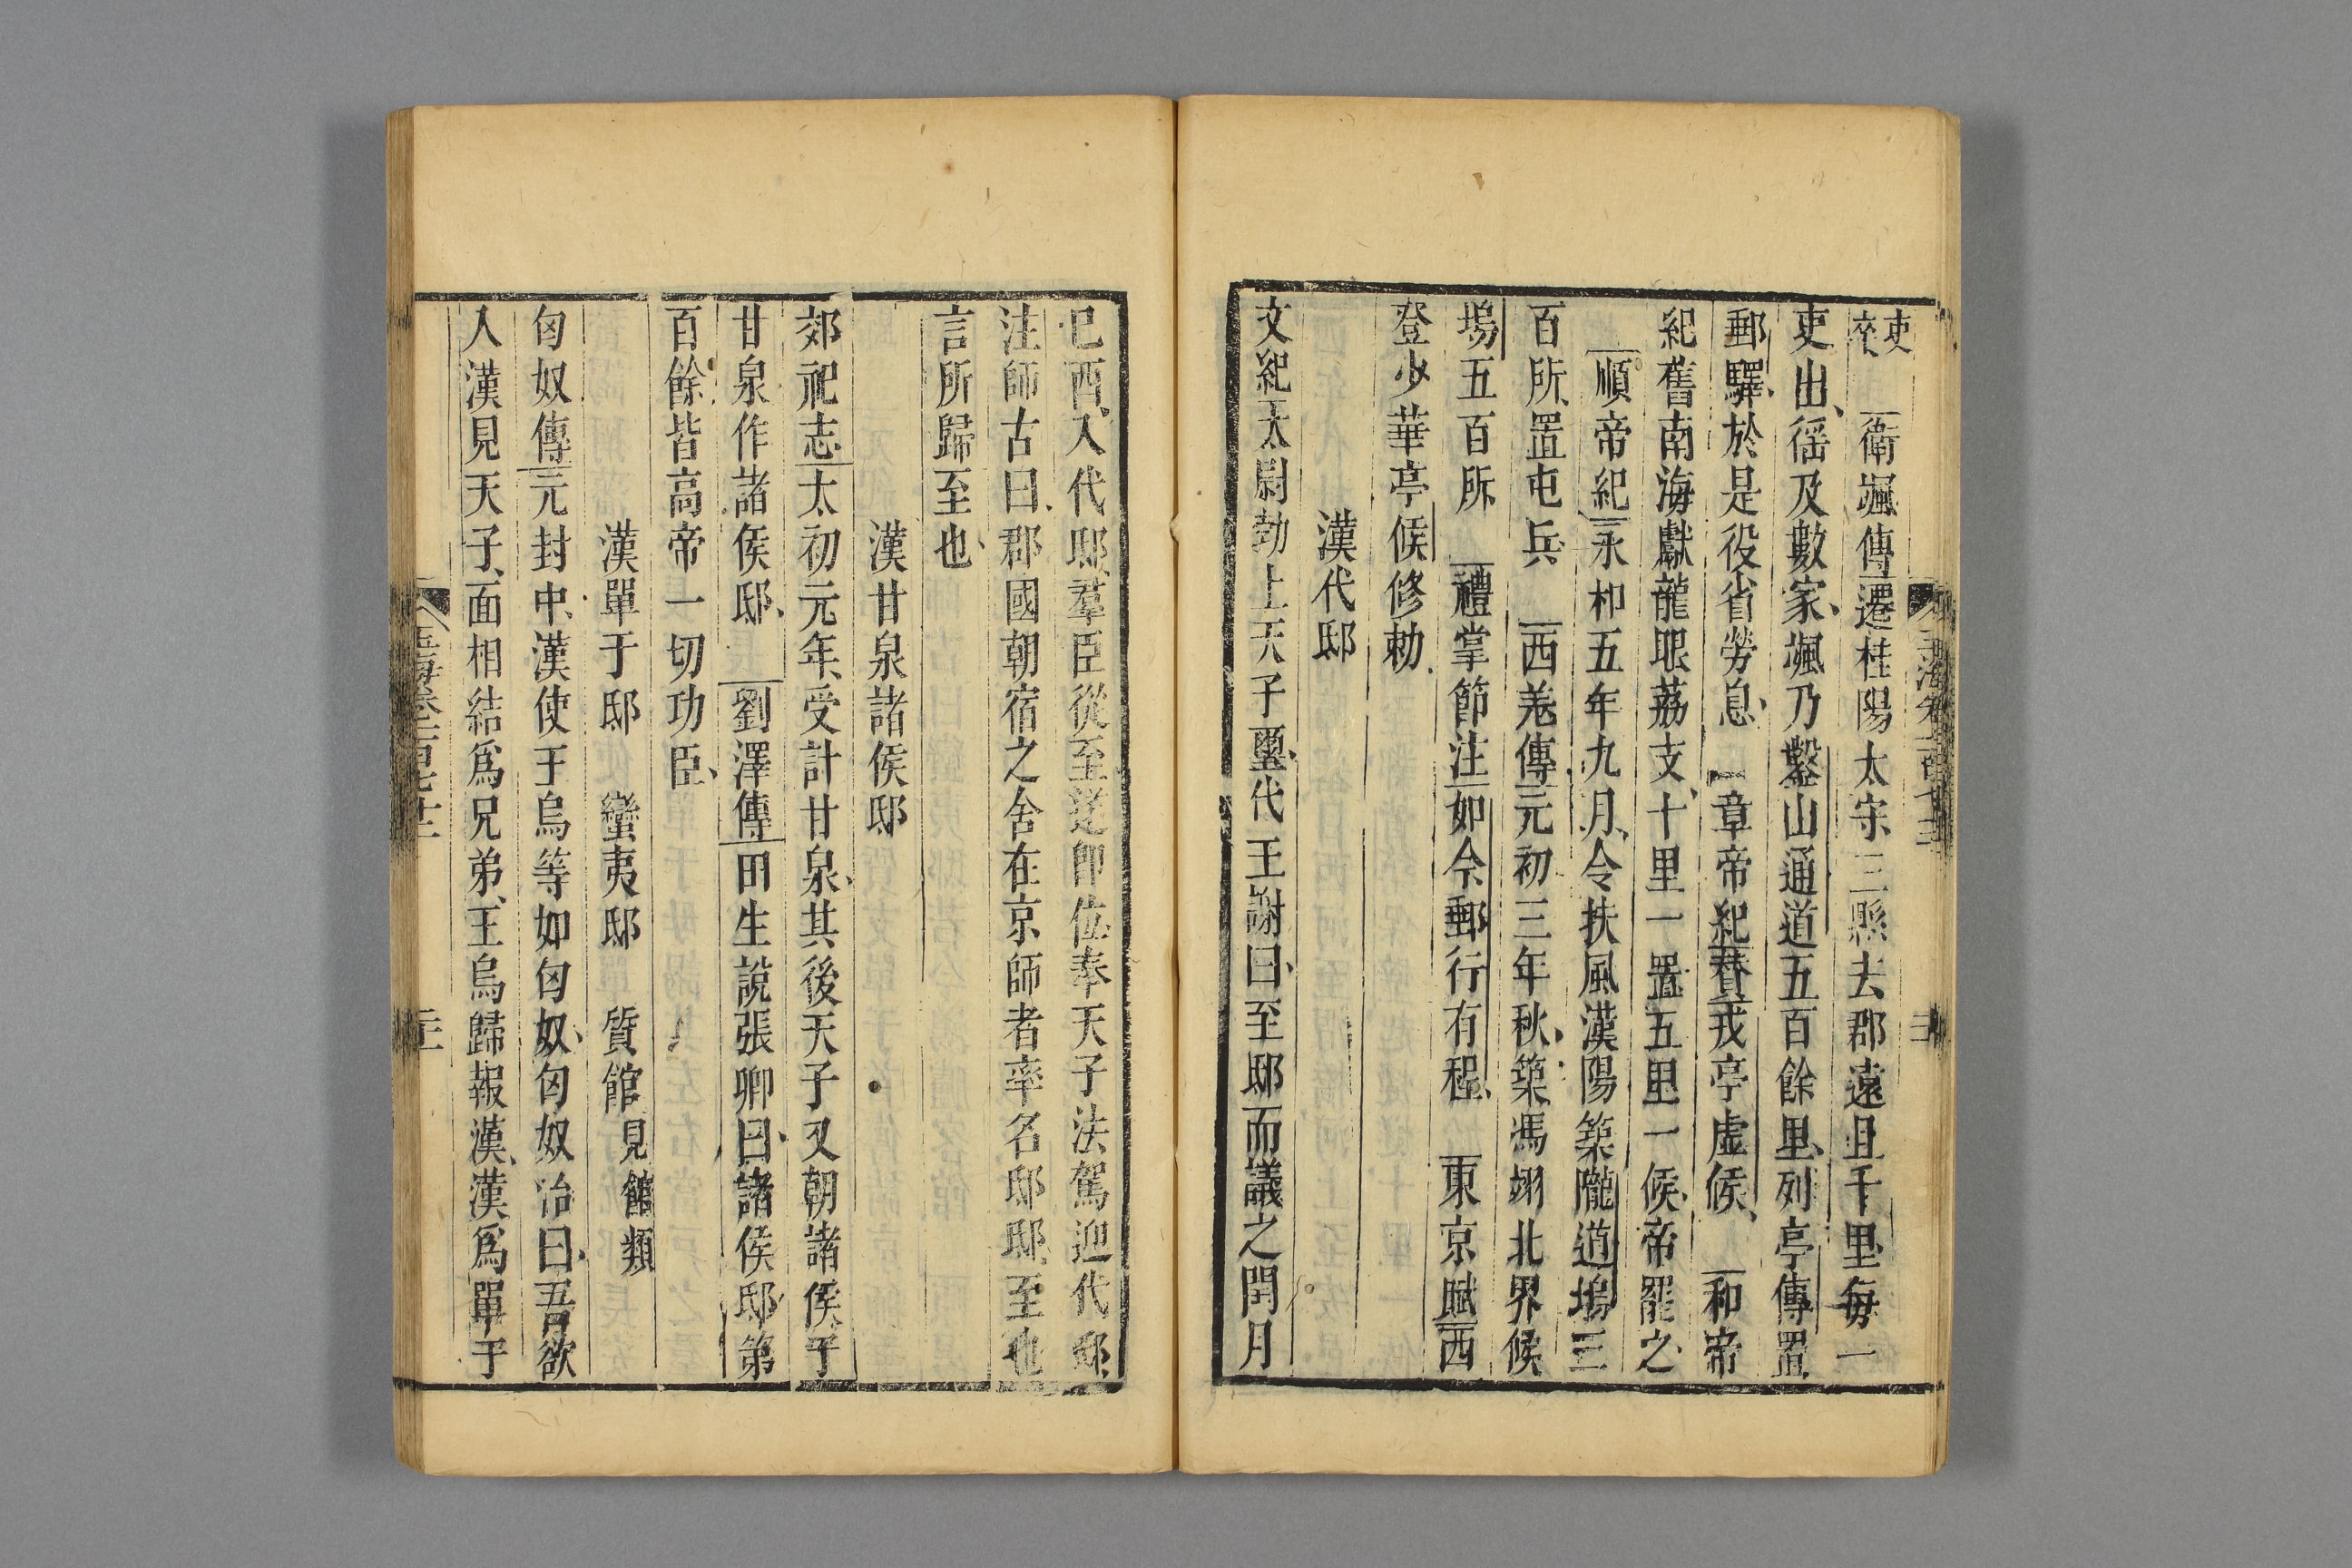 吏卒 衞颯傳遷桂陽太守三縣去郡遠且千里每一
吏出徭及數家颯乃鑿山通道五百餘里列亭傳置
郵驛於是役省勞息 章帝紀贊戎亭虛候 和帝
紀舊南海獻龍眼荔支十里一置五里一候帝罷之
順帝紀永和五年九月令扶風漢陽築隴道塢三
百所置屯兵 西羌傳元初三年秋築馮翊北界候
塢五百所 禮掌節注如今郵行有程 東京賦西
登少華亭候修勅
漢代邸
文紀太尉勃上天子璽代王謝曰至邸而議之閏月
己酉入代邸羣臣從至遂即位奉天子法駕迎代邸
注師古曰郡國朝宿之舍在京師者率名邸邸至也
言所歸至也
漢甘泉諸侯邸
郊祀志太初元年受計甘泉其後天子又朝諸侯于
甘泉作諸侯邸 劉澤傳田生說張卿曰諸侯邸第
百餘皆高帝一切功臣
漢單于邸 蠻夷邸 質館見館類
匈奴傳元封中漢使王烏等如匈奴匈奴紿曰吾欲
入漢見天子面相結爲兄弟王烏歸報漢漢爲單于
玉海卷一百七十二